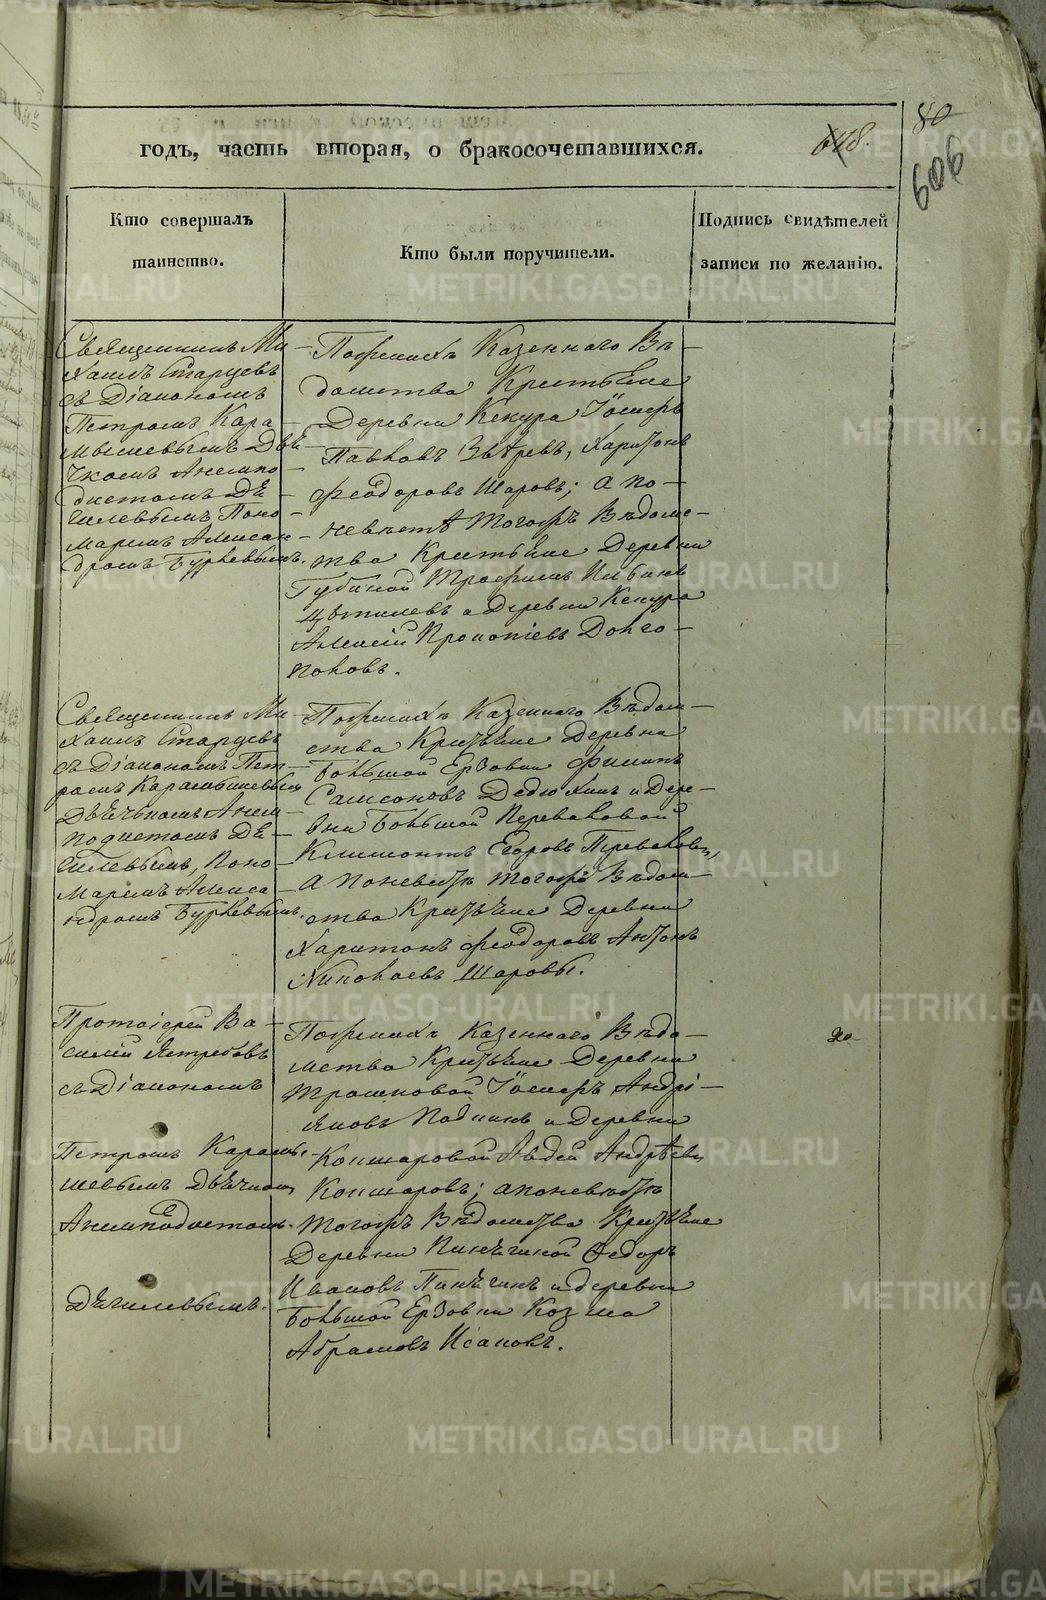 годъ, часть вторая, о бракосочетавшихся.
618.
80
606
Кто совершалъ
таинство.
Кто были поручители.
Подпись свидѣтелей
записи по желанію.
Священникъ Ми-
хаилъ Старцевъ
съ Діакономъ
Петромъ Кара-
мышевымъ Дья-
чкомъ Анемпо-
дистомъ Дѣ-
гилевымъ, Поно-
маремъ Алексан-
дромъ Буркевымъ.
По женихѣ Казеннаго Вѣ-
домства Крестьяне
Деревни Кекура Іосифъ
Павловъ Звѣревъ, Харитонъ
Феодоровъ Шаровъ; а по
невѣстѣ тогожъ Вѣдомс-
тва Крестьяне Деревни
Губиной Трофимъ
а Деревни Кекура
Алексѣй Прокопіевъ Долго-
половъ.
Священникъ Ми-
хаилъ Старцевъ
съ Діакономъ Пет-
ромъ Карамышевымъ
Дьячкомъ Анем-
подистомъ Дѣ-
гилевымъ, Поно-
маремъ Алекса-
ндромъ Буркевымъ.
По женихѣ Казеннаго Вѣдом-
ства Крестьяне Деревни
Большой Ерзовки Филипъ
Самсоновъ Дедюхинъ и Дере-
вни Большой Переваловой
Климонтъ Егоровъ Переваловъ,
а по невѣстѣ тогожъ Вѣдом-
ства Крестьяне Деревни
Харитонъ Феодоровъ Антонъ
Николаевъ Шаровы.
Протоіерей Ва-
силій Ястребовъ
съ Діакономъ
Петромъ Карамы-
шевымъ Дьячкомъ
Анемподистомъ
Дѣгилевымъ.
По женихѣ Казеннаго Вѣдо-
мства Крестьяне Деревни
Трошковой Іосифъ Андрі-
яновъ и Деревни
Кокшаровой Авдей Андрѣевъ
Кокшаровъ; а по невѣстѣ
тогожъ Вѣдомства Крестьяне
Деревни Пинѣгиной Федоръ
Ивановъ Пинѣгинъ и деревни
Большой Ерзовки Козма
Абрамовъ Исаковъ.
METRIKI.GASO-URAL.RU